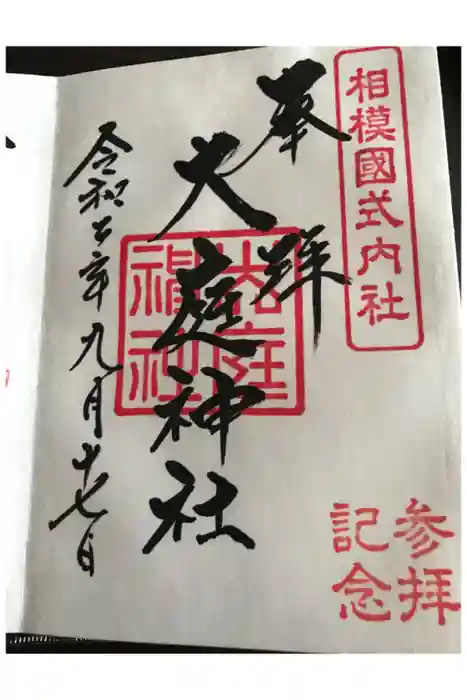 相模國式内社
奉拝
大庭神社
大庭
神社
令和三年九月十七日
参拝
記念